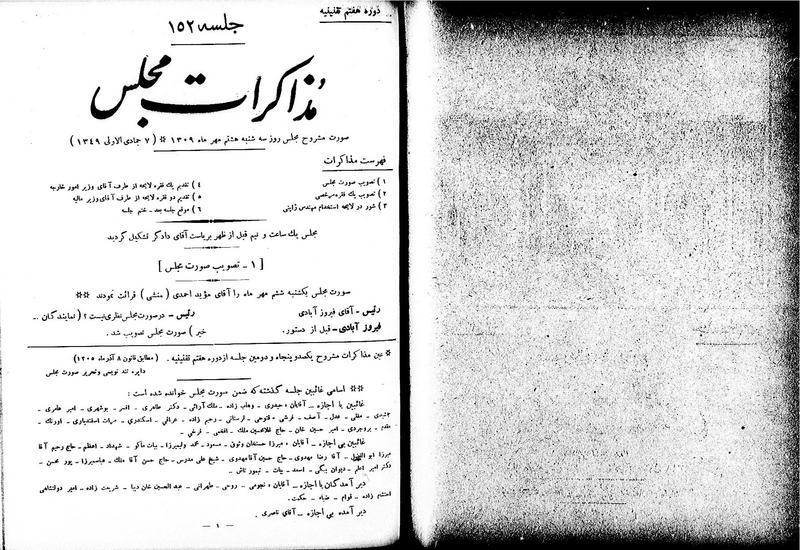 دوره هفتم تقنینیه
جلسه ۱۵۲
مذاکرات مجلس
صورت مشروح مجلس روز سه شنبه هشتم مهر ماه ۱۳۰۹ * ( ۷ جمادی الاولی ۱۳۴۹ )
فهرست مذاکرات
۱ ) تصویب صورت مجلس
۲ ) تصویب یك فقره مرخصی
۳ ) شور در لایحه استخدام مهندس ژاپنی
۴ ) تقدیم یك فقره لایحه از طرف آقای وزیر امور خارجه
۵ ) تقدیم دو فقره لایحه از طرف آقای وزیر مالیه
۶ ) موقع جلسه بعد - ختم جلسه
مجلس یك ساعت و نیم قبل از ظهر بریاست آقای دادگر تشکیل گردید
[ ۱ - تصویب صورت مجلس ]
صورت مجلس یکشنبه ششم مهر ماه را آقای مؤید احمدی ( منشی ) قرائت نمودند **
رئیس - آقای فیروز آبادی
فیروز آبادی - قبل از دستور.
رئیس - در صورت مجلس نظری نیست ؟ ( نمایندگان ..
خیر ) صورت مجلس تصویب شد .
* عین مذاکرات مشروح یکصدو پنجاه و دومین جلسه از دوره هفتم تقنینیه . ( مطابق قانون ۸ آذر ماه ۱۳۰۵ )
دایره تند نویسی و تحریر صورت مجلس
** اسامی غائبین جلسه گذشته که ضمن صورت مجلس خوانده شده است :
غائبین با اجازه - آقایان : حیدری - وهاب زاده - ملك آرائی - دکتر طاهری - افسر - بوشهری - امیر عامری -
جمشیدی - مفتی - عدل - آصف - قرشی - فتوحی - لرستانی - رحیم زاده - عراقی - اسکندری - میرزا اسفندیاری - اورنك -
مقدم - بروجردی - امیر حسین خان - حاج غلامحسین ملك - افخمی - فرخی -
غائبین بی اجازه - آقایان : میرزا حسنخان وثوق - مسعود - محمد ولیمیرزا - بیات ماکو - شهداد - اعظم - حاج رحیم آقا
میرزا ابو الفضل - آقا رضا مهدوی - حاج حسین آقا مهدوی - شیخ علی مدرس - حاج حسن آقا ملك - عباسمیرزا - پور محسن -
دکتر امیر اعلم - دیوان بیگی - اسعد - بیات - تیمور تاش -
دیر آمدگان با اجازه - آقایان : نجومی - روحی - طهرانی - عبد الحسین خان دیبا - شریعت زاده - امیر دولتشاهی
احتشام زاده - قوام - ضیاء - حکمت .
دیر آمده بی اجازه - آقای ناصری .
- ۱ -